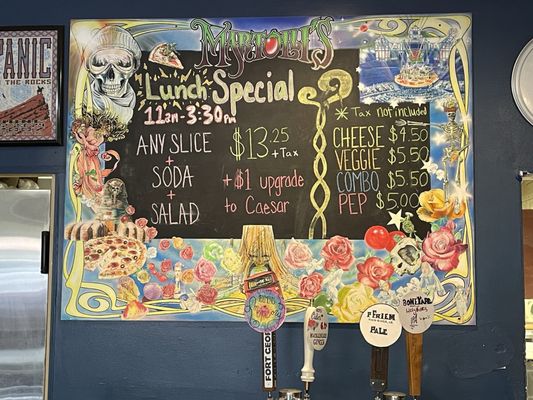 MARTOLLI'S
ANIC
THE ROCKS
Lunch Special
11am-3:30pm
ANY SLICE
+
SODA
+
SALAD
$13.25
+ Tax
+$1 upgrade
to Caesar
* Tax not included
CHEESE $4.50
VEGGIE $5.50
COMBO $5.50
PEP $5.00
FORT GEOR
PFRIEM
PALE
BONEYARD